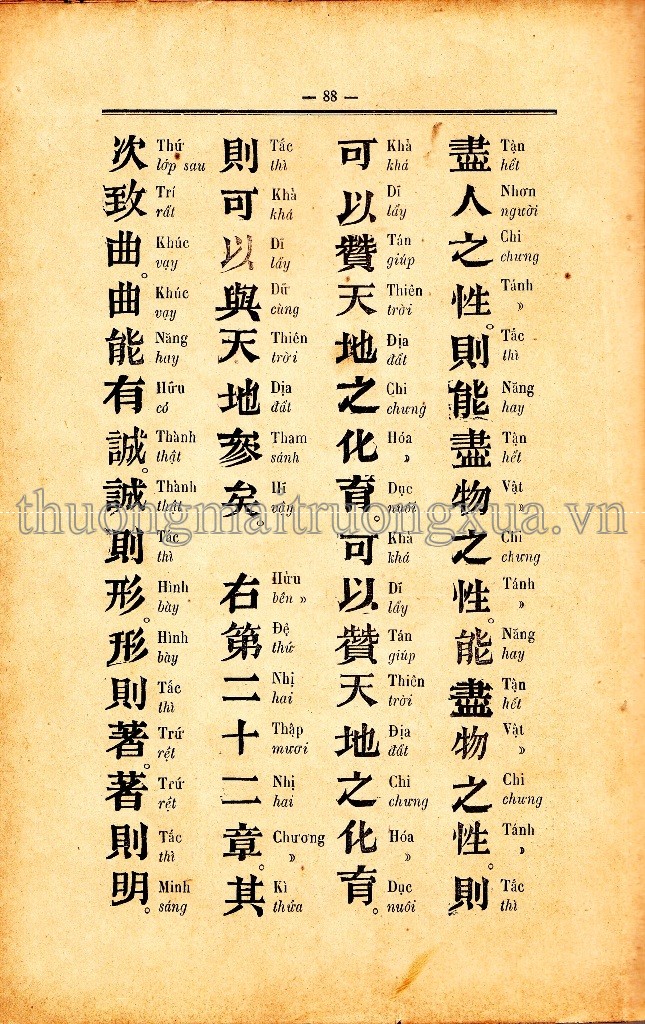 — 88 —
盡人之性。則能盡物之性。能盡物之性。則
Tận hết Nhơn người Chi chưng Tánh » Tắc thì Năng hay Tận hết Vật » Chi chưng Tánh » Năng hay Tận hết Vật » Chi chưng Tánh » Tắc thì
可以贊天地之化育。可以贊天地之化育。
Khả khá Dĩ lấy Tán giúp Thiên trời Địa đất Chi chưng Hóa » Dục nuôi Khả khá Dĩ lấy Tán giúp Thiên trời Địa đất Chi chưng Hóa » Dục nuôi
則可以與天地參矣。右第二十二章。其
Tắc thì Khả khá Dĩ lấy Dữ cùng Thiên trời Địa đất Tham sánh Hĩ vậy Hữu bên » Đệ thứ Nhị hai Thập mươi Nhị hai Chương » Kì thửa
次致曲。曲能有誠。誠則形。形則著。著則明。
Thứ lớp sau Trí rất Khúc vạy Khúc vạy Năng hay Hữu có Thành thật Thành thật Tắc thì Hình bày Hình bày Tắc thì Trứ rệt Trứ rệt Tắc thì Minh sáng
thuongmaitruongxua.vn